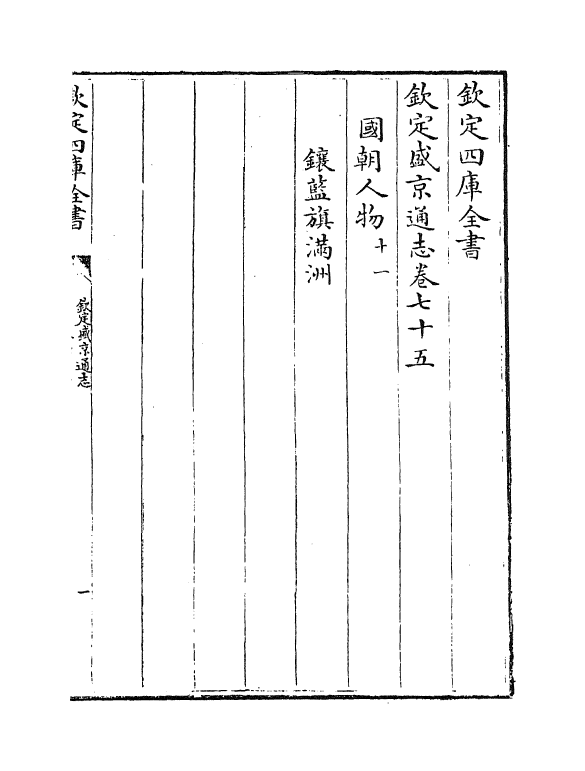 欽定四庫全書
欽定盛京通志卷七十五
國朝人物十一
鑲藍旗滿洲
欽定四庫全書
欽定盛京通志
一